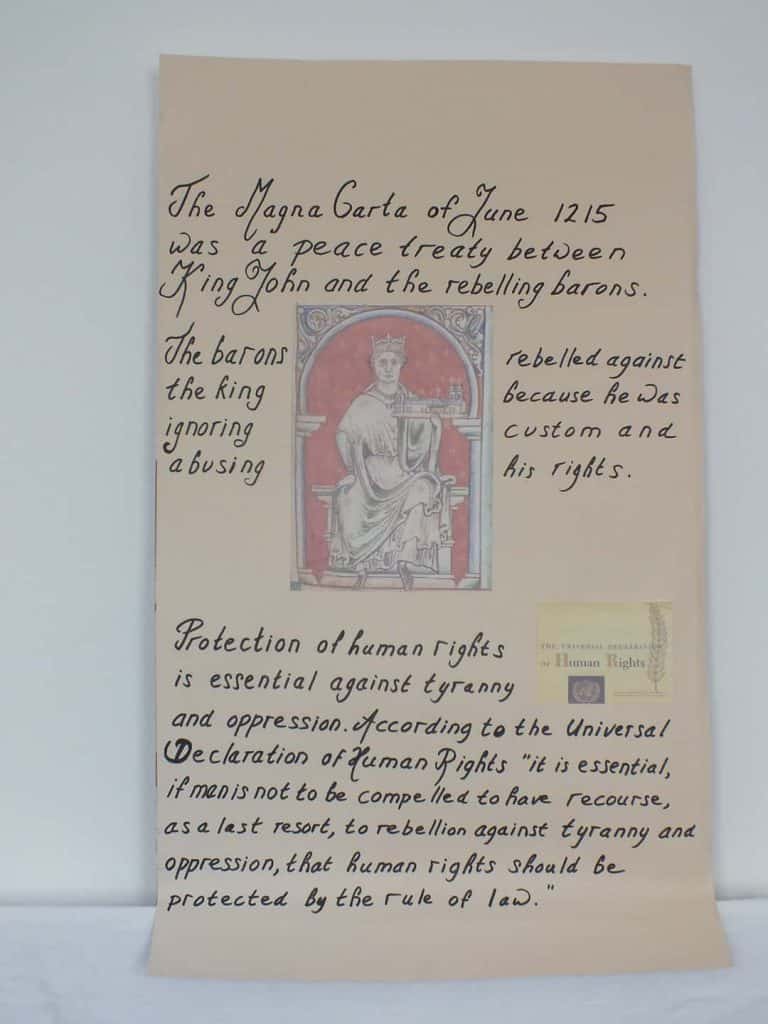 The Magna Carta of June 1215
was a peace treaty between
King John and the rebelling barons.
The barons rebelled against
the king because he was
ignoring custom and
abusing his rights.
Protection of human rights
is essential against tyranny
THE UNIVERSAL DECLARATION
OF Human Rights
and oppression. According to the Universal
Declaration of Human Rights "it is essential,
if man is not to be compelled to have recourse,
as a last resort, to rebellion against tyranny and
oppression, that human rights should be
protected by the rule of law."